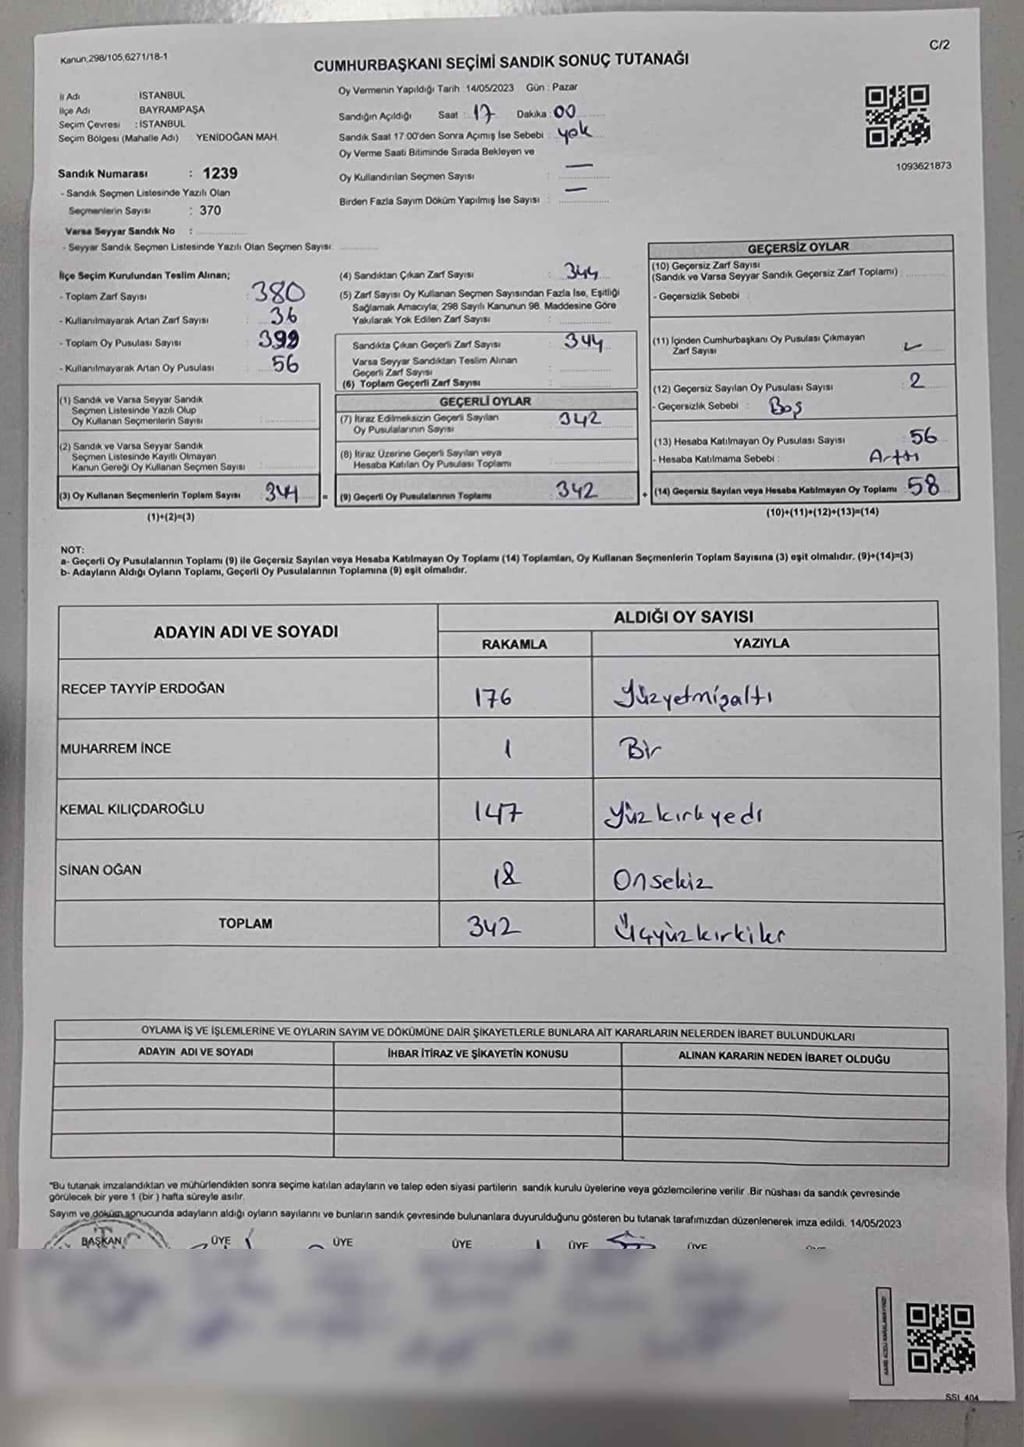 Kanun;298/105,6271/18-1
C/2
CUMHURBAŞKANI SEÇİMİ SANDIK SONUÇ TUTANAĞI
İl Adı : İSTANBUL
İlçe Adı : BAYRAMPAŞA
Seçim Çevresi : İSTANBUL
Seçim Bölgesi (Mahalle Adı) YENİDOĞAN MAH.
Sandık Numarası : 1239
- Sandık Seçmen Listesinde Yazılı Olan
Seçmenlerin Sayısı : 370
Varsa Seyyar Sandık No :
- Seyyar Sandık Seçmen Listesinde Yazılı Olan Seçmen Sayısı:
Oy Vermenin Yapıldığı Tarih :14/05/2023 Gün : Pazar
Sandığın Açıldığı Saat : 17 Dakika : 00
Sandık Saat 17:00'den Sonra Açımış İse Sebebi : yok
Oy Verme Saati Bitiminde Sırada Bekleyen ve
Oy Kullandırılan Seçmen Sayısı : —
Birden Fazla Sayım Döküm Yapılmış İse Sayısı : —
1093621873
İlçe Seçim Kurulundan Teslim Alınan;
- Toplam Zarf Sayısı : 380
- Kullanılmayarak Artan Zarf Sayısı : 36
- Toplam Oy Pusulası Sayısı : 399
- Kullanılmayarak Artan Oy Pusulası : 56
(1) Sandık ve Varsa Seyyar Sandık
Seçmen Listesinde Yazılı Olup
Oy Kullanan Seçmenlerin Sayısı
(2) Sandık ve Varsa Seyyar Sandık
Seçmen Listesinde Kayıtlı Olmayan
Kanun Gereği Oy Kullanan Seçmen Sayısı
(3) Oy Kullanan Seçmenlerin Toplam Sayısı 344 =
(1)+(2)=(3)
(4) Sandıktan Çıkan Zarf Sayısı : 344
(5) Zarf Sayısı Oy Kullanan Seçmen Sayısından Fazla İse, Eşitliği
Sağlamak Amacıyla; 298 Sayılı Kanunun 98. Maddesine Göre
Yakılarak Yok Edilen Zarf Sayısı :
Sandıkta Çıkan Geçerli Zarf Sayısı : 344
Varsa Seyyar Sandıktan Teslim Alınan
Geçerli Zarf Sayısı
(6) Toplam Geçerli Zarf Sayısı
GEÇERLİ OYLAR
(7) İtiraz Edilmeksizin Geçerli Sayılan
Oy Pusulalarının Sayısı 342
(8) İtiraz Üzerine Geçerli Sayılan veya
Hesaba Katılan Oy Pusulası Toplamı
(9) Geçerli Oy Pusulalarının Toplamı 342 +
GEÇERSİZ OYLAR
(10) Geçersiz Zarf Sayısı
(Sandık ve Varsa Seyyar Sandık Geçersiz Zarf Toplamı)
- Geçersizlik Sebebi :
(11) İçinden Cumhurbaşkanı Oy Pusulası Çıkmayan
Zarf Sayısı
(12) Geçersiz Sayılan Oy Pusulası Sayısı 2
- Geçersizlik Sebebi : Boş
(13) Hesaba Katılmayan Oy Pusulası Sayısı 56
- Hesaba Katılmama Sebebi : Arttı
(14) Geçersiz Sayılan veya Hesaba Katılmayan Oy Toplamı 58
(10)+(11)+(12)+(13)=(14)
NOT:
a- Geçerli Oy Pusulalarının Toplamı (9) ile Geçersiz Sayılan veya Hesaba Katılmayan Oy Toplamı (14) Toplamları, Oy Kullanan Seçmenlerin Toplam Sayısına (3) eşit olmalıdır. (9)+(14)=(3)
b- Adayların Aldığı Oyların Toplamı, Geçerli Oy Pusulalarının Toplamına (9) eşit olmalıdır.
ADAYIN ADI VE SOYADI
ALDIĞI OY SAYISI
RAKAMLA YAZIYLA
RECEP TAYYİP ERDOĞAN 176 Yüzyetmişaltı
MUHARREM İNCE 1 Bir
KEMAL KILIÇDAROĞLU 147 Yüz kırk yedi
SİNAN OĞAN 18 Onsekiz
TOPLAM 342 Üçyüzkırkiki
OYLAMA İŞ VE İŞLEMLERİNE VE OYLARIN SAYIM VE DÖKÜMÜNE DAİR ŞİKAYETLERLE BUNLARA AİT KARARLARIN NELERDEN İBARET BULUNDUKLARI
ADAYIN ADI VE SOYADI İHBAR İTİRAZ VE ŞİKAYETİN KONUSU ALINAN KARARIN NEDEN İBARET OLDUĞU
"Bu tutanak imzalandıktan ve mühürlendikten sonra seçime katılan adayların ve talep eden siyasi partilerin sandık kurulu üyelerine veya gözlemcilerine verilir .Bir nüshası da sandık çevresinde
görülecek bir yere 1 (bir ) hafta süreyle asılır.
Sayım ve döküm sonucunda adayların aldığı oyların sayılarını ve bunların sandık çevresinde bulunanlara duyurulduğunu gösteren bu tutanak tarafımızdan düzenlenerek imza edildi. 14/05/2023
BAŞKAN ÜYE ÜYE ÜYE ÜYE ÜYE
SSI_404